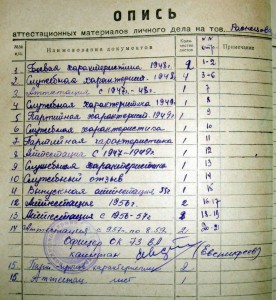 ОПИСЬ
аттестационных материалов личного дела на тов.
№№ п/п Наименование документов Количество листов №№ стр. Примечание
1 Боевая характеристика 1943г. 2 1-2
2 Служебная характерист. 1948г. 4 3-6
3 Аттестация с 1947г.-48г. 1 7
4 Служебная характеристика 1949г. 1 8
5 Партийная характерист. 1949г. 1 9
6 Служебная характеристика 1 10
7 Партийная характеристика 1 11
8 Аттестация с 1947-1949г. 1 12
9 Служебная характеристика 1 13
10 Служебный отзыв 1 14
11 Выпускная аттестация 1 15
12 Аттестация 1956г. 2 16-17
13 Аттестация с 1956-57г. 2 18-19
14 Аттестация с 1957-по 8.59г. 2 20-21
Офицер ОК 73 ВА
капитан
15 Парт. характеристика
16 Аттестац. лист 1